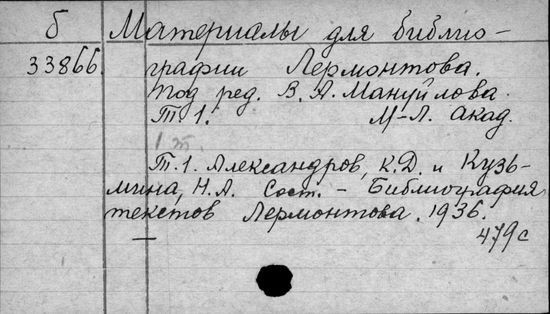 б Материалы для библио-
33866. графии Лермонтова.
Под ред. В. А. Мануйлова.
Т 1. М-Л. Акад.
1 т.
Т. 1. Александров, К.Д. и Кузь-
мина, Н.А. Сост. - Библиография
текстов Лермонтова. 1936.
479с